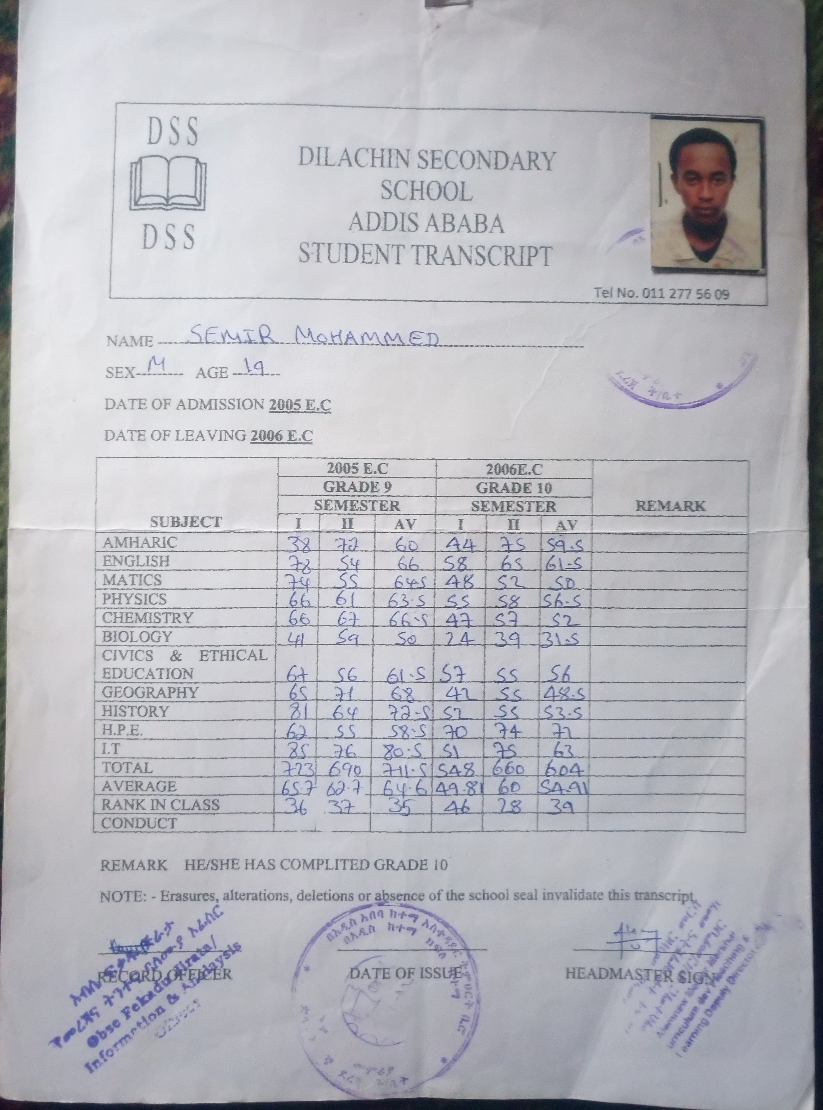 DSS
DSS
DILACHIN SECONDARY
SCHOOL
ADDIS ABABA
STUDENT TRANSCRIPT
Tel No. 011 277 56 09
NAME SEMIR MOHAMMED
SEX M AGE 19
DATE OF ADMISSION 2005 E.C
DATE OF LEAVING 2006 E.C
SUBJECT 2005 E.C 2006E.C REMARK
GRADE 9 GRADE 10
SEMESTER SEMESTER
I II AV I II AV
AMHARIC 38 72 60 44 75 59.5
ENGLISH 78 54 66 58 65 61.5
MATICS 74 55 64.5 48 52 50
PHYSICS 66 61 63.5 55 58 56.5
CHEMISTRY 66 67 66.5 47 57 52
BIOLOGY 41 59 50 24 39 31.5
CIVICS & ETHICAL
EDUCATION 67 56 61.5 57 55 56
GEOGRAPHY 65 71 68 42 55 48.5
HISTORY 81 64 72.5 52 55 53.5
H.P.E. 62 55 58.5 70 74 72
I.T 85 76 80.5 51 75 63
TOTAL 723 690 711.5 548 660 604
AVERAGE 65.7 62.7 64.6 49.81 60 54.91
RANK IN CLASS 36 37 35 46 28 39
CONDUCT
REMARK HE/SHE HAS COMPLITED GRADE 10
NOTE: - Erasures, alterations, deletions or absence of the school seal invalidate this transcript.
RECORD OFFICER DATE OF ISSUE HEADMASTER SIGN
Obse Fekadu
Information & Analaysis
Teaching &
Learning Deputy Director